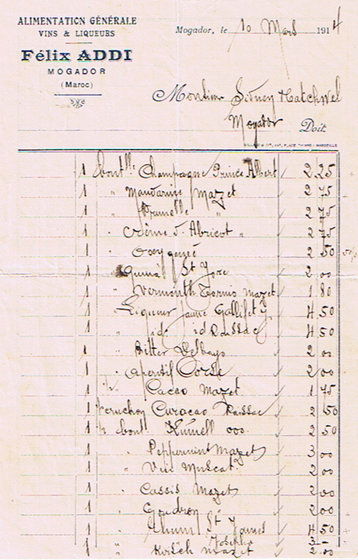 ALIMENTATION GÉNÉRALE
VINS & LIQUEURS
Félix ADDI
MOGADOR
(Maroc)
Mogador, le 10 Mars 1914
Monsieur Simon Hatchwel
Mogador Doit
1 boutlle Champagne Prince Albert 2 25
1 " Mandarine Mazet 2 75
1 " Prunelle " 2 75
1 " Crème d'Abricot " 2 75
1 " Oxygené 2 50
1 Quina St 2 00
1 " Vermouth Torino Mazet 1 80
1 Liqueur jaune Galliffet 4 50
1 " 4 50
1 " Bitter 2 00
1 " Aperitif Corse 2 00
1 Cacao Mazet 1 75
1 Curacao 2 50
1 bout Kumell ooo. 2 50
1 " Peppermint Mazet 3 00
1 " Vin Muscat 2 00
1 " Cassis Mazet 2 00
1 " Goudron 2 00
1 Rhum St James 4 50
1 " Josepha 3 -
1 " Kirsch Mazet 2 00